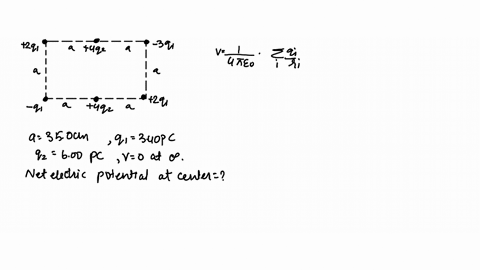 +2q₁ a +4q₂ a -3q₁
a a
-q₁ a +4q₂ a +2q₁
V = 1/4πε₀ · Σᵢ qᵢ/rᵢ
a = 35.0cm , q₁ = 3.40 pC
q₂ = 6.00 pC , V=0 at ∞.
Net electric potential at center = ?